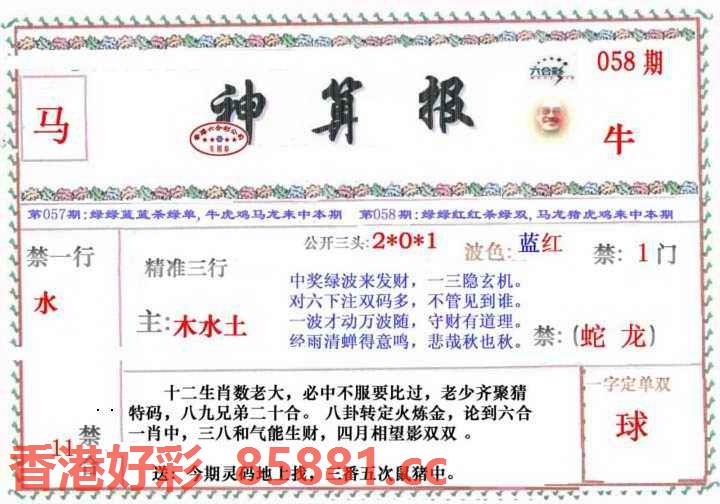 马
神算报
六合彩
058期
牛
第057期:绿绿蓝蓝杀绿单,牛虎鸡马龙来中本期 第058期:绿绿红红杀绿双,马龙猪虎鸡来中本期
禁一行
水
精准三行
主:木水土
公开三头:2*0*1
波色:蓝红
禁:1门
中奖绿波来发财，一三隐玄机。
对六下注双码多，不管见到谁。
一波才动万波随，守财有道理。
经雨清蝉得意鸣，悲哉秋也秋。
禁:(蛇 龙)
十二生肖数老大，必中不服要比过，老少齐聚猜
特码，八九兄弟二十合。 八卦转定火炼金，论到六合
一肖中，三八和气能生财，四月相望影双双 。
送：今期灵码地上找，三番五次鼠猪中。
禁
11
合
一字定单双
球
香港好彩 85881.cc